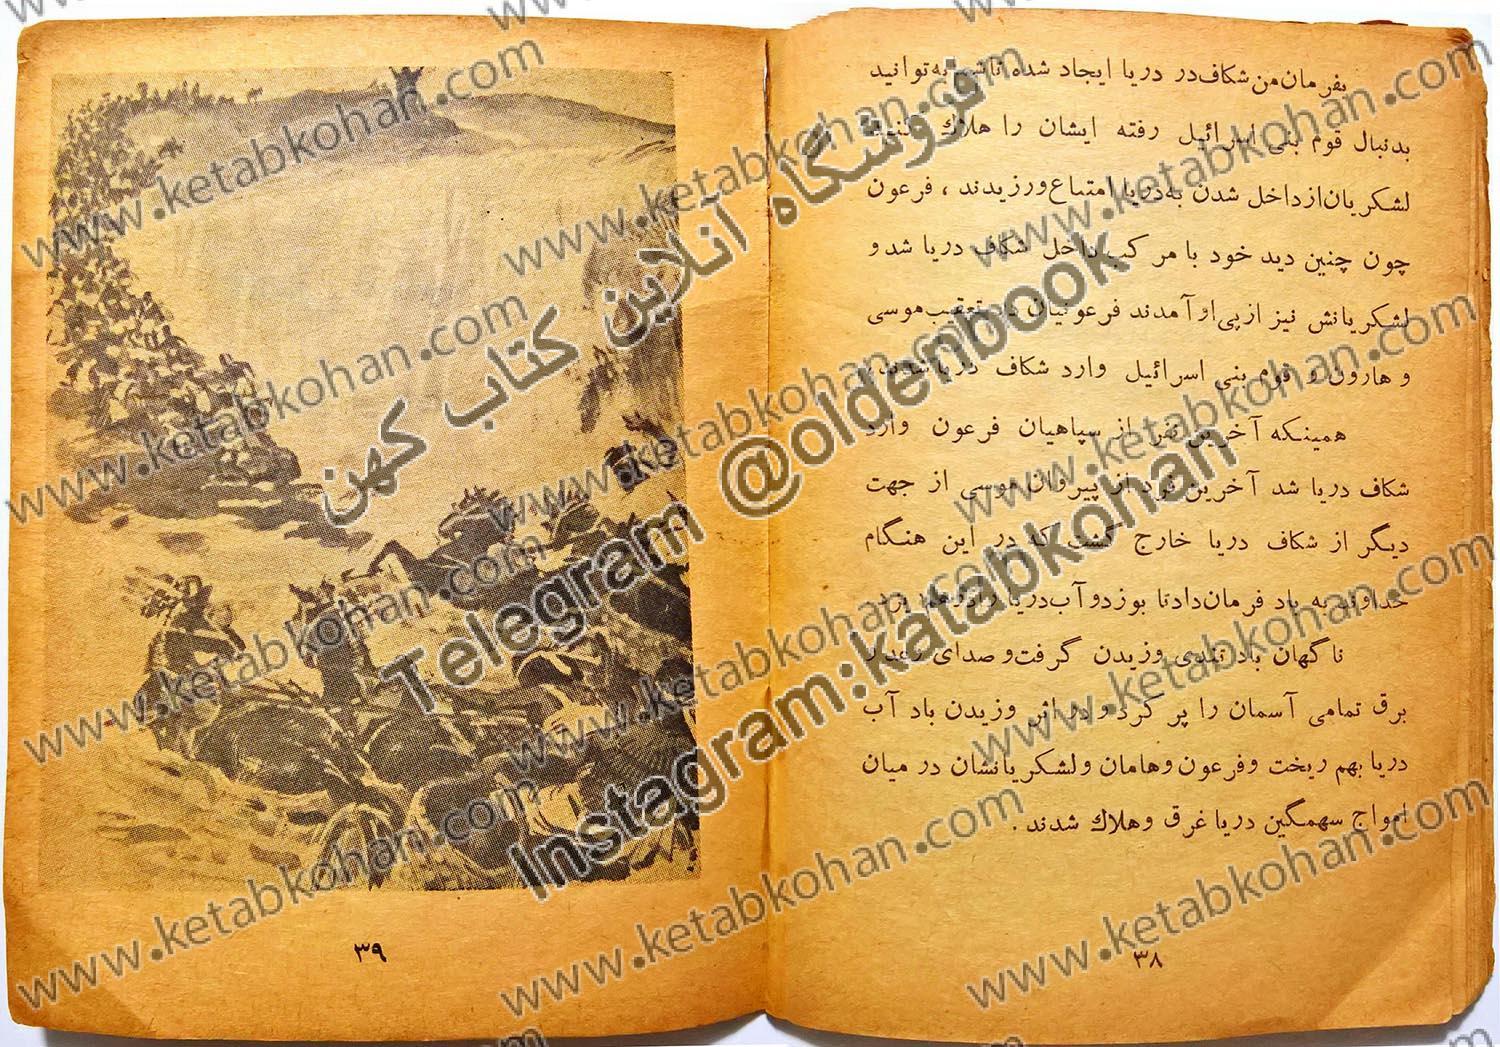 بفرمان من شکاف در دریا ایجاد شده تا شما به توانید
بدنبال قوم بنی اسرائیل رفته ایشان را هلاك کنید
لشکریان از داخل شدن به دریا امتناع ورزیدند ، فرعون
چون چنین دید خود با مرکب داخل شکاف دریا شد و
لشکریانش نیز از پی او آمدند فرعونیان در تعقیب موسی
و هارون و قوم بنی اسرائیل وارد شکاف دریا شدند ،
همینکه آخرین نفر از سپاهیان فرعون وارد
شکاف دریا شد آخرین فرد از پیروان موسی از جهت
دیگر از شکاف دریا خارج گشت که در این هنگام
خداوند به باد فرمان داد تا بوزد و آب دریا را درهم
ناگهان باد تندی وزیدن گرفت و صدای رعد و
برق تمامی آسمان را پر کرد و در اثر وزیدن باد آب
دریا بهم ریخت و فرعون و هامان و لشکریانشان در میان
امواج سهمگین دریا غرق و هلاك شدند .
۳۸
۳۹
فروشگاه آنلاین کتاب کهن
Telegram @oldenbook
Instagram:katabkohan
www.ketabkohan.com